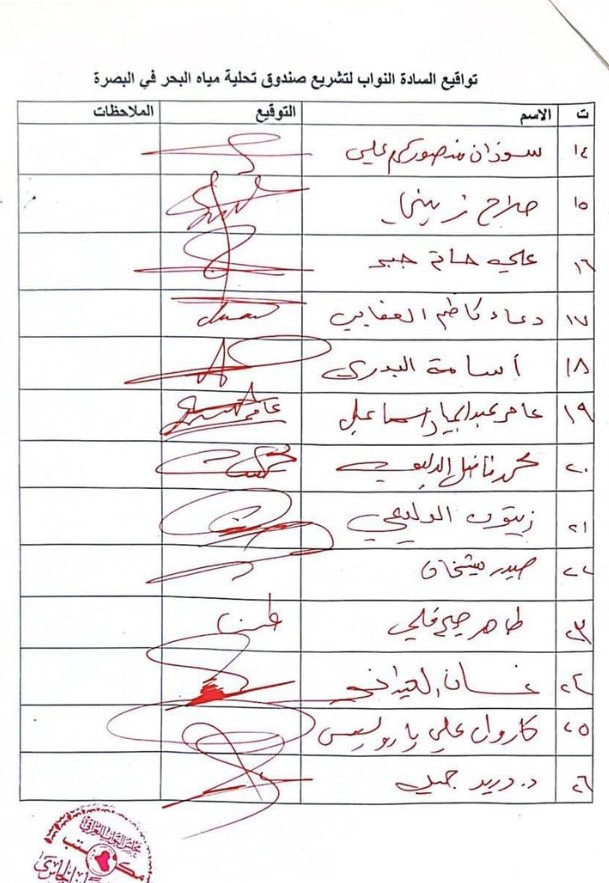 تواقيع السادة النواب لتشريع صندوق تحلية مياه البحر في البصرة
ت الاسم التوقيع الملاحظات
١٤ سوزان منصور كرم علي
١٥ صلاح زيني
١٦ علي حاتم جبر
١٧ دعاء كاظم
١٨ أسامة البدري
١٩ عامر عبد الجبار اسماعيل عامر
٢٠ محمد فاضل الدليمي
٢١ زيتون الدليمي
٢٢ حيدر شيخان
٢٣ طاهر
٢٤ غسان العيداني
٢٥ كاروان علي يارويس
٢٦ د. دريد جميل
مكتب